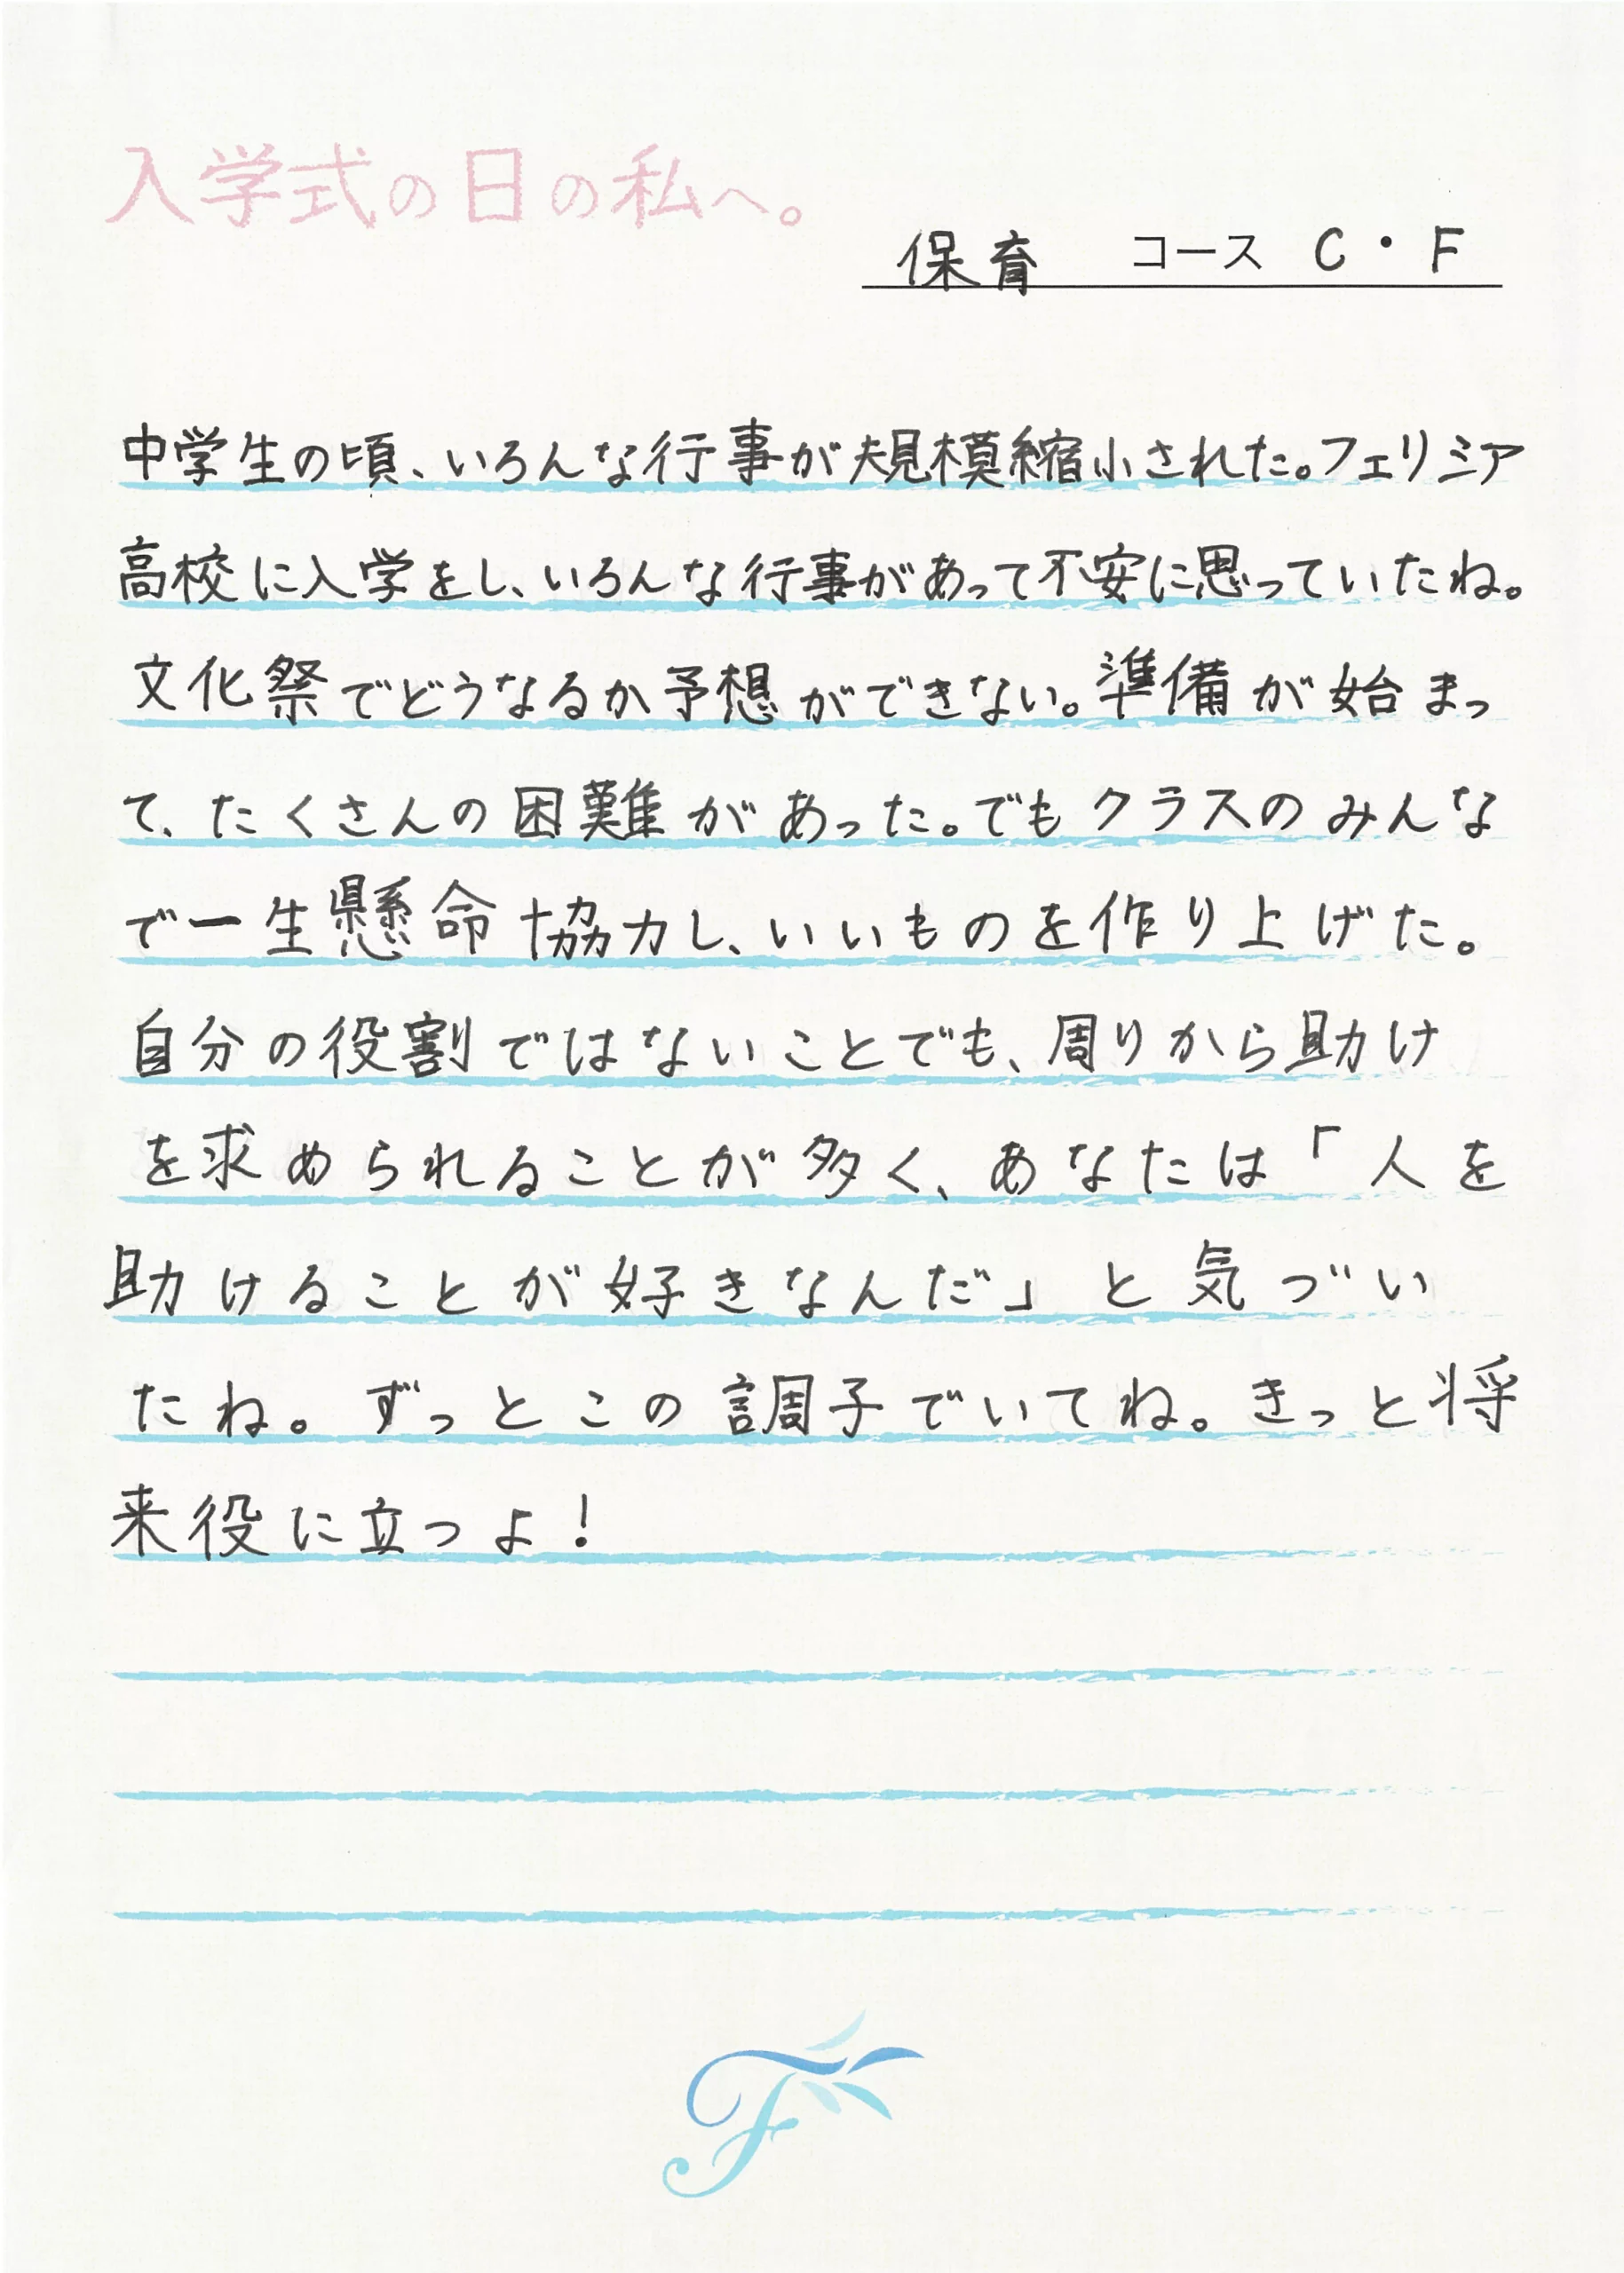 入学式の日の私へ。
保育 コース C・F
中学生の頃、いろんな行事が規模縮小された。フェリシア
高校に入学をし、いろんな行事があって不安に思っていたね。
文化祭でどうなるか予想ができない。準備が始まっ
て、たくさんの困難があった。でもクラスのみんな
で一生懸命協力し、いいものを作り上げた。
自分の役割ではないことでも、周りから助け
を求められることが多く、あなたは「人を
助けることが好きなんだ」と気づい
たね。ずっとこの調子でいてね。きっと将
来役に立つよ！